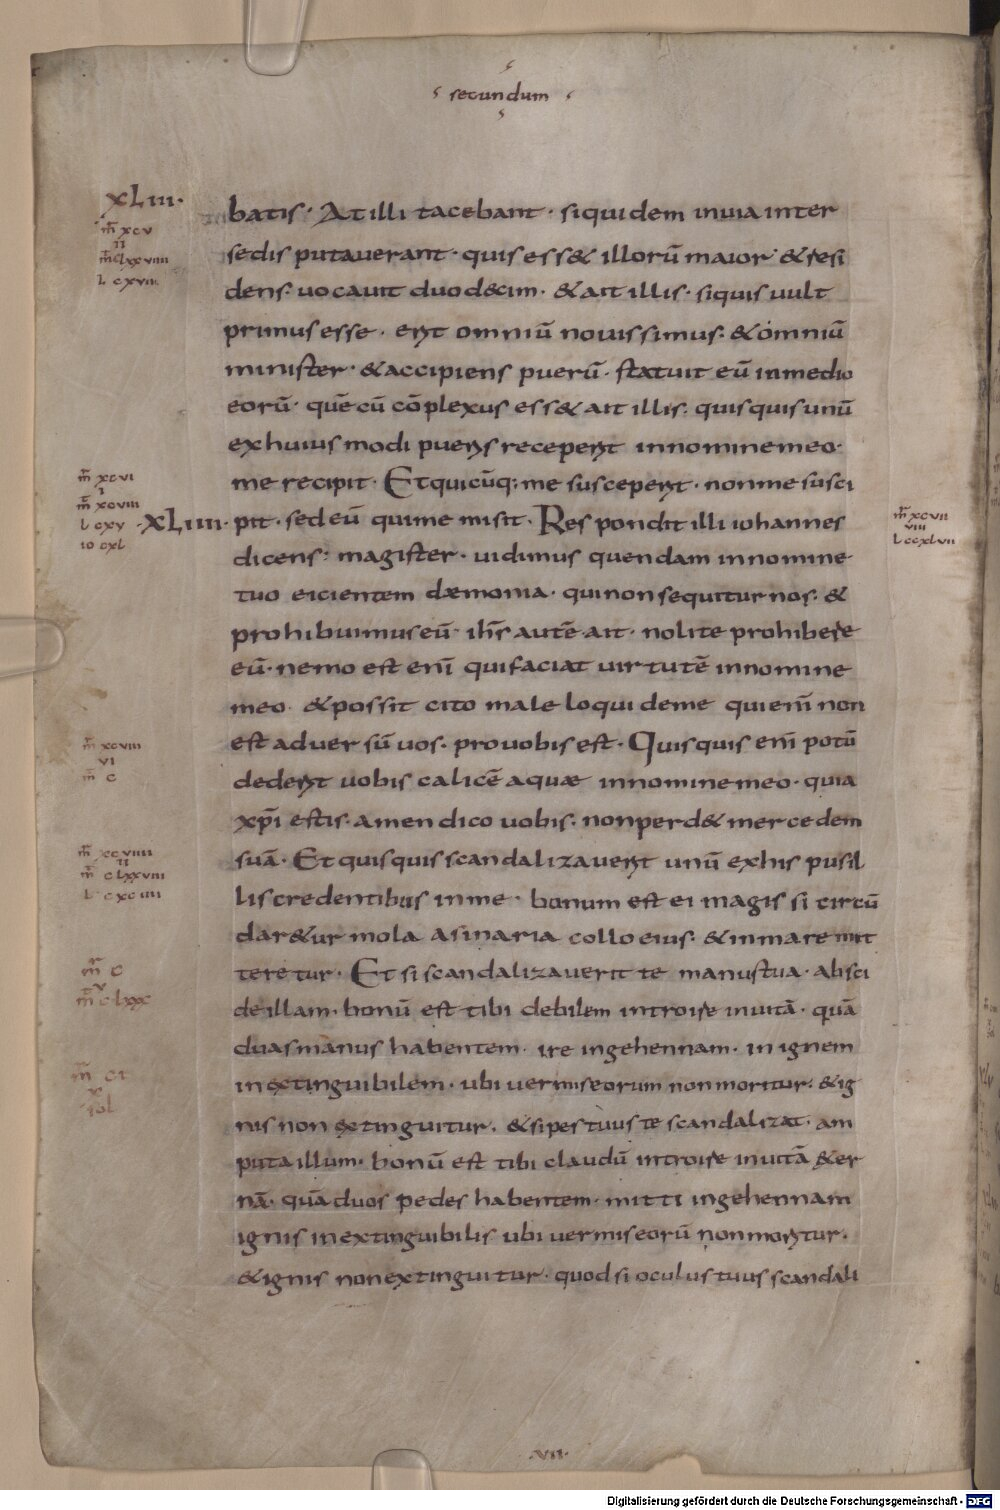 secundum
XLIII·
m̄ xcv
II
m̄ clxxviiii
l cxvii
batis· At illi tacebant· siquidem in uia inter
sedis putauerant· quis ess& illorū maior· & resi
dens· uocauit duod&im· & ait illis· siquis uult
primus esse· erit omniū nouissimus· & omniū
minister· & accipiens puerū· statuit eū in medio
eorū· quē cū cōplexus ess& ait illis· quisquis unū
ex huiusmodi pueris receperit in nomine meo·
me recipit· Et quicūq; me susceperit· non me susci
m̄ xcvi
I
m̄ xcviii
l cxv
io cxl
XLIIII·
pit· sed eū qui me misit· Respondit illi iohannes
m̄ xcvii
VIII
l ccxlvii
dicens· magister· uidimus quendam in nomine
tuo eicientem dæmonia· qui non sequitur nos· &
prohibuimus eū· ih̄s autē ait· nolite prohibere
eū· nemo est eni̅ qui faciat uirtutē in nomine
meo· & possit cito male loqui de me qui eni̅ non
est aduersū uos· pro uobis est· Quisquis eni̅ potū
m̄ xcviii
VI
m̄ c
dederit uobis calicē aquae in nomine meo· quia
xp̄i estis· amen dico uobis· non perd& mercedem
suā· Et quisquis scandalizauerit unū ex his pusil
m̄ xcviiii
II
m̄ clxxviiii
l cxciiii
lis credentibus in me· bonum est ei magis si circū
dar&ur mola asinaria collo eius· & in mare mit
teretur· Et si scandalizauerit te manus tua· absci
m̄ c
m̄ clxxx
de illam· bonū est tibi debilem introire in uitā· quā
duas manus habentem· ire in gehennam· in ignem
m̄ ci
inextinguibilem· ubi uermis eorum non moritur· & ig
nis non extinguitur· & si pes tuus te scandalizat· am
puta illum· bonū est tibi claudū introire in uitā &er
nā· quā duos pedes habentem· mitti in gehennam
ignis inextinguibilis ubi uermis eorū non moritur·
& ignis non extinguitur· quod si oculus tuus scandali
·VII·
Digitalisierung gefördert durch die Deutsche Forschungsgemeinschaft - DFG